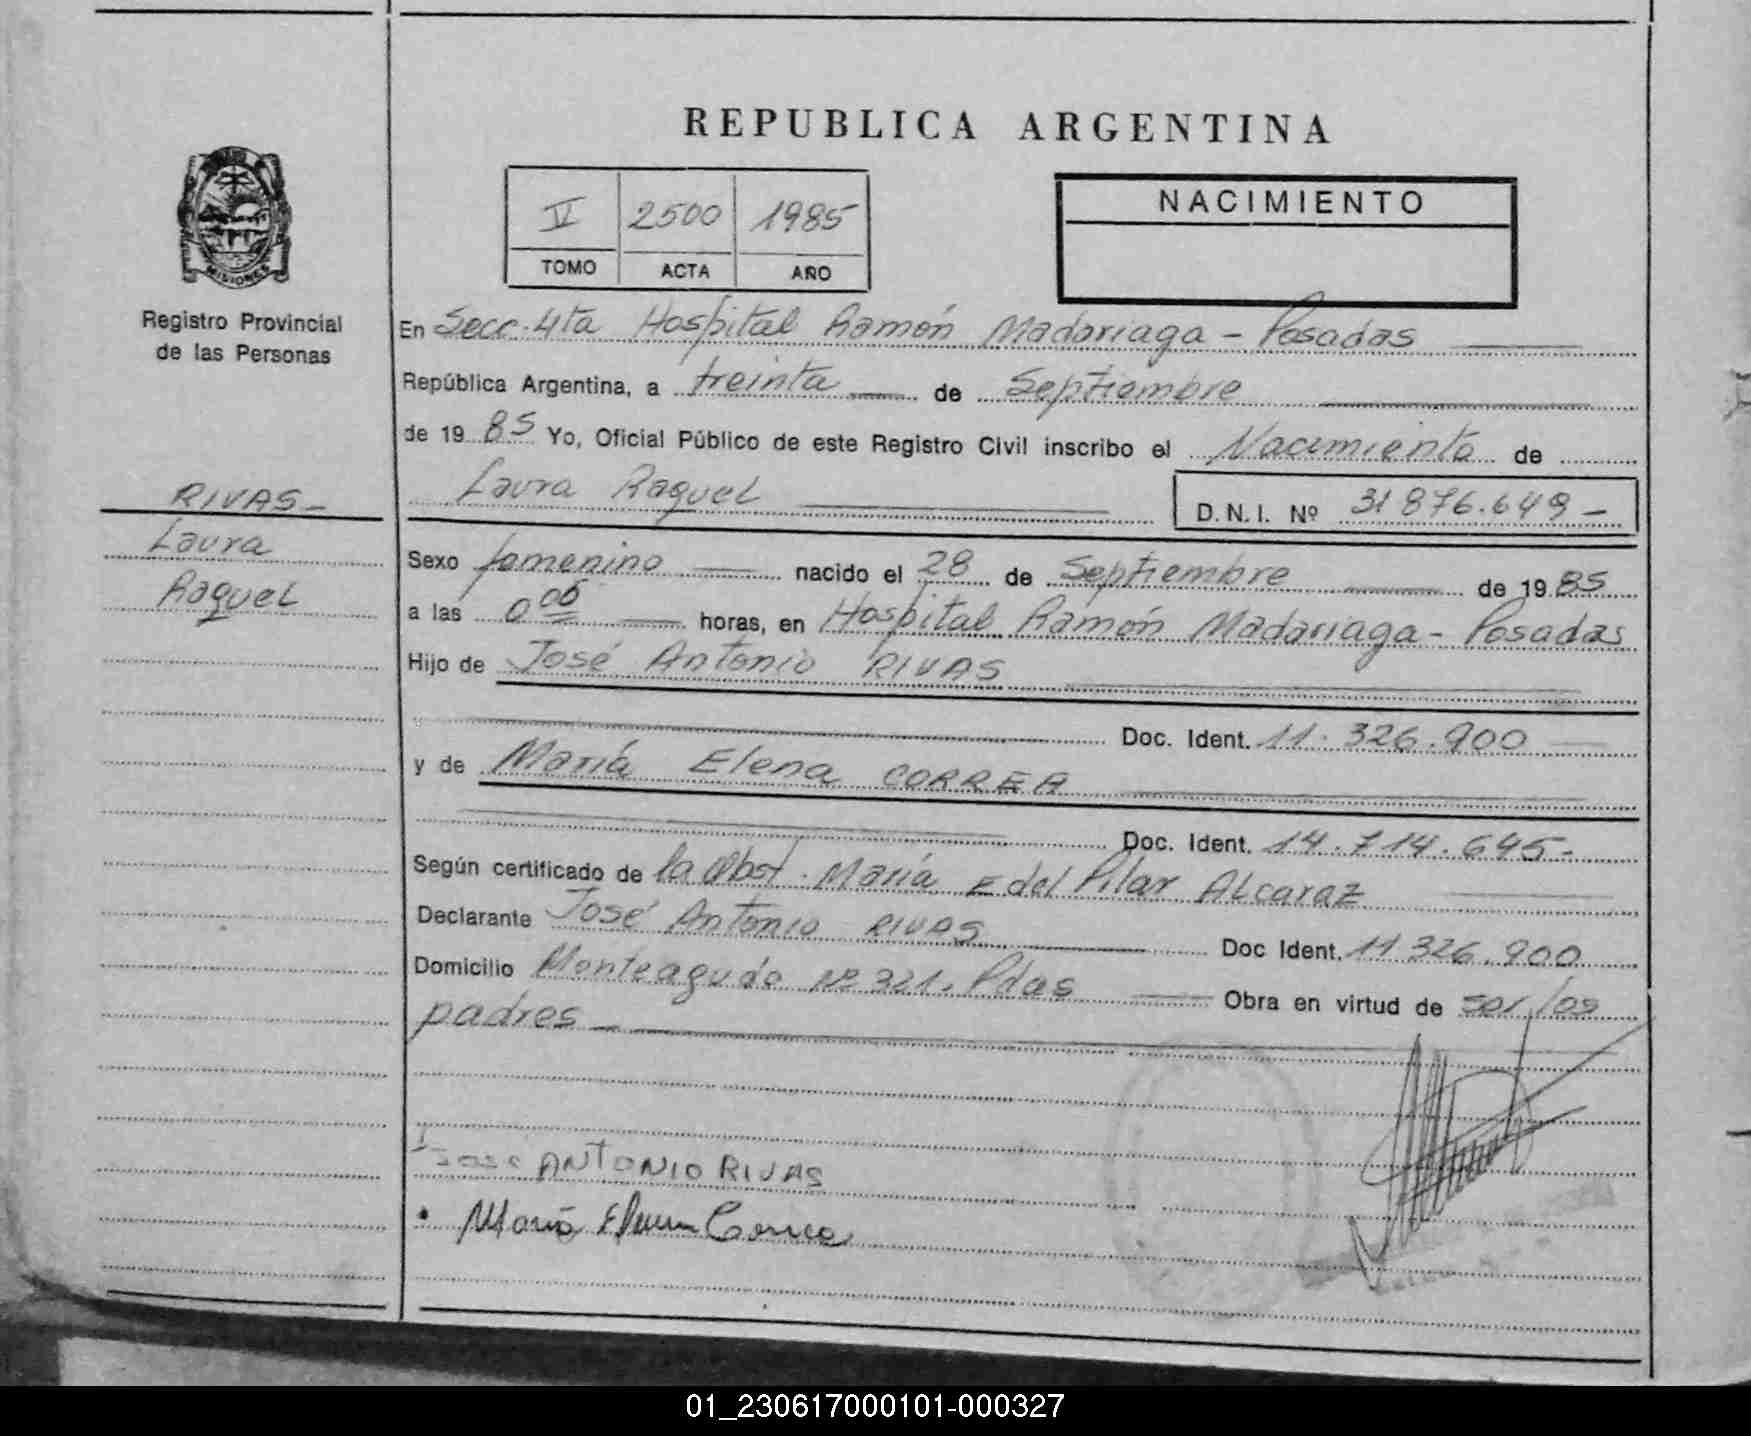 REPUBLICA ARGENTINA
NACIMIENTO
IV 2500 1985
TOMO ACTA AÑO
MISIONES
Registro Provincial
de las Personas
RIVAS-
Laura
Raquel
En Secc. 4ta Hospital Ramón Madariaga - Posadas
República Argentina, a treinta de Septiembre
de 19 85 Yo, Oficial Público de este Registro Civil inscribo el Nacimiento de
Laura Raquel D.N.I. Nº 31 876.649-
Sexo femenino nacido el 28 de Septiembre de 19 85
a las 0 06 horas, en Hospital Ramón Madariaga - Posadas
Hijo de José Antonio RIVAS
Doc. Ident. 11. 326.900
y de María Elena CORREA
Doc. Ident. 14.714.645-
Según certificado de la Obst. María E del Pilar Alcaraz
Declarante José Antonio RIVAS Doc Ident. 11 326.900
Domicilio Monteagudo Nº 321. Pdas Obra en virtud de ser los
padres -
Jose ANTONIO RIVAS
María Elena Correa
01_230617000101-000327